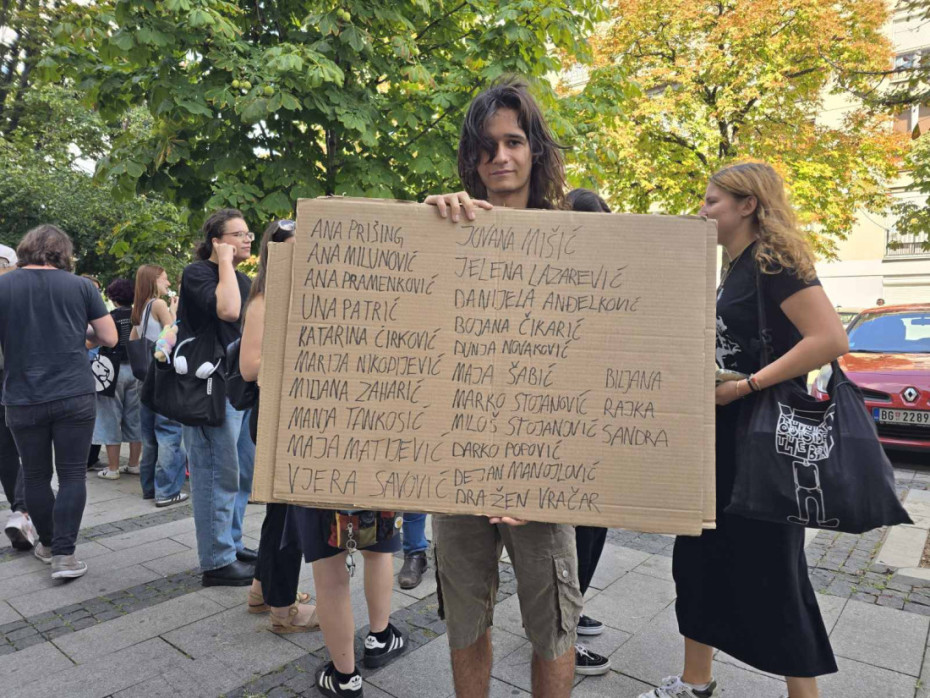 ANA PRIŠING
ANA MILUNOVIĆ
ANA PRAMENKOVIĆ
UNA PATRIĆ
KATARINA ĆIRKOVIĆ
MARIJA NIKODIJEVIĆ
MILJANA ZAHARIĆ
MANJA TANKOSIĆ
MAJA MATIJEVIĆ
VJERA SAVOVIĆ
JOVANA MIŠIĆ
JELENA LAZAREVIĆ
DANIJELA ANĐELKOVIĆ
BOJANA ČIKARIĆ
DUNJA NOVAKOVIĆ
MAJA ŠABIĆ
MARKO STOJANOVIĆ
MILOŠ STOJANOVIĆ
DARKO POPOVIĆ
DEJAN MANOJLOVIĆ
DRAŽEN VRAČAR
BILJANA
RAJKA
SANDRA
THINKING
OUTSIDE
THE BOX
BG 2289